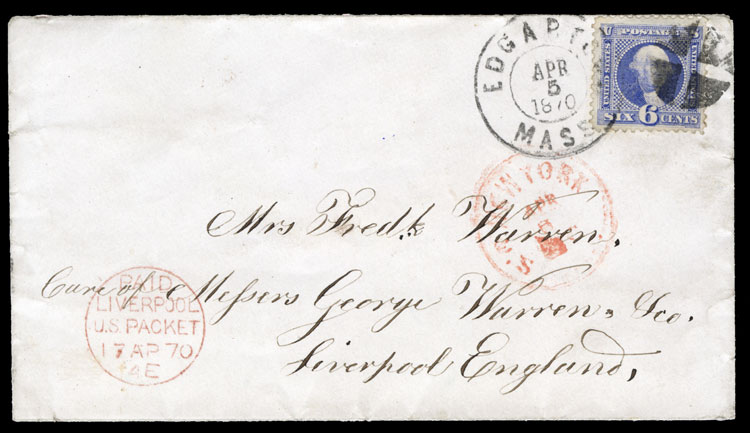 EDGARTO
APR
5
1870
MASS
U.S. POSTAGE
UNITED STATES
SIX 6 CENTS
NEW YORK
APR
Mrs Fredk Warren.
Care of Messers George Warren & Co.
Liverpool England,
PAID
LIVERPOOL
U.S. PACKET
17 AP 70
AE